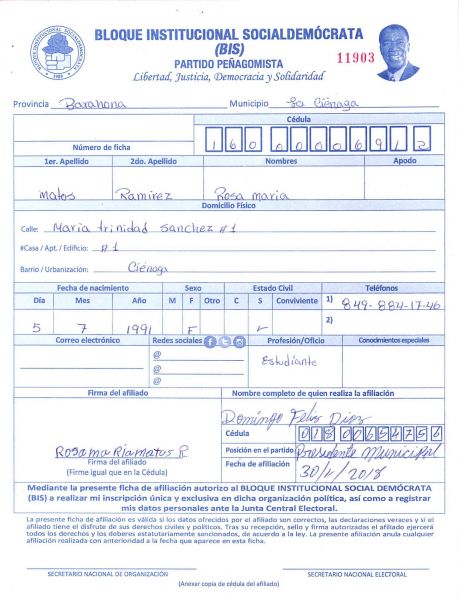 BLOQUE INSTITUCIONAL SOCIALDEMÓCRATA
(BIS)
PARTIDO PEÑAGOMISTA
Libertad, Justicia, Democracia y Solidaridad
11903
BLOQUE INSTITUCIONAL SOCIALDEMOCRATA
Provincia Barahona Municipio La Ciénaga
Cédula
Número de ficha 160 0000691 2
1er. Apellido 2do. Apellido Nombres Apodo
Matos Ramirez Rosa maria
Domicilio Físico
Calle: Maria trinidad Sanchez #1
#Casa / Apt. / Edificio: #1
Barrio / Urbanización: Ciénaga
Fecha de nacimiento Sexo Estado Civil Teléfonos
Día Mes Año M F Otro C S Conviviente 1) 849-884-17-46
2)
5 7 1991 F ✓
Correo electrónico Redes sociales Profesión/Oficio Conocimientos especiales
@ Estudiante
@
@
Firma del afiliado Nombre completo de quien realiza la afiliación
Domingo Feliz Diaz
Cédula
Rosama Riamatos R. Posición en el partido Presidente Municipal
Firma del afiliado Fecha de afiliación
(Firme igual que en la Cédula)
Mediante la presente ficha de afiliación autorizo al BLOQUE INSTITUCIONAL SOCIAL DEMÓCRATA
(BIS) a realizar mi inscripción única y exclusiva en dicha organización política, así como a registrar
mis datos personales ante la Junta Central Electoral.
La presente ficha de afiliación es válida si los datos ofrecidos por el afiliado son correctos, las declaraciones veraces y si el
afiliado tiene el disfrute de sus derechos civiles y políticos. Tras su recepción, sello y firma autorizados el afiliado ejercerá
todos los derechos y los deberes estatutariamente sancionados, de acuerdo a la ley. La presente afiliación anula cualquier
afiliación realizada con anterioridad a la fecha que aparece en esta ficha.
SECRETARIO NACIONAL DE ORGANIZACIÓN SECRETARIO NACIONAL ELECTORAL
(Anexar copia de cédula del afiliado)